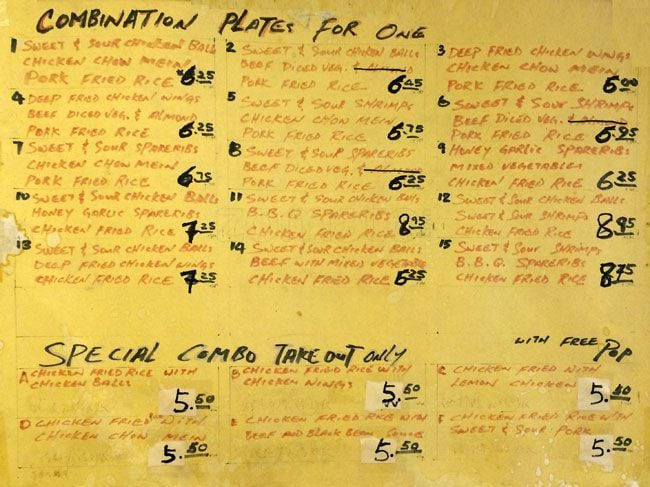 COMBINATION PLATES FOR ONE
1 SWEET & SOUR CHICKEN BALLS
CHICKEN CHOW MEIN
PORK FRIED RICE 6.25
2 SWEET & SOUR CHICKEN BALLS
BEEF DICED VEG. & ALMOND
PORK FRIED RICE 6.25
3 DEEP FRIED CHICKEN WINGS
CHICKEN CHOW MEIN
PORK FRIED RICE
4 DEEP FRIED CHICKEN WINGS
BEEF DICED VEG. & ALMOND
PORK FRIED RICE 6.25
5 SWEET & SOUR SHRIMPS
CHICKEN CHOW MEIN
PORK FRIED RICE 6.75
6 SWEET & SOUR SHRIMPS
BEEF DICED VEG. & ALMOND
PORK FRIED RICE 6.95
7 SWEET & SOUR SPARERIBS
CHICKEN CHOW MEIN
PORK FRIED RICE 6.75
8 SWEET & SOUR SPARERIBS
BEEF DICED VEG. & ALMOND
PORK FRIED RICE 6.25
9 HONEY GARLIC SPARERIBS
MIXED VEGETABLES
CHICKEN FRIED RICE 6.25
10 SWEET & SOUR CHICKEN BALLS
HONEY GARLIC SPARERIBS
CHICKEN FRIED RICE 7.25
11 SWEET & SOUR CHICKEN BALLS
B.B.Q SPARERIBS
CHICKEN FRIED RICE 8.95
12 SWEET & SOUR CHICKEN BALLS
SWEET & SOUR SHRIMPS
CHICKEN FRIED RICE 8.95
13 SWEET & SOUR CHICKEN BALLS
DEEP FRIED CHICKEN WINGS
CHICKEN FRIED RICE 7.25
14 SWEET & SOUR CHICKEN BALLS
BEEF WITH MIXED VEGETABLE
CHICKEN FRIED RICE 6.25
15 SWEET & SOUR SHRIMPS
B.B.Q. SPARERIBS
CHICKEN FRIED RICE
SPECIAL COMBO TAKEOUT ONLY
WITH FREE POP
A CHICKEN FRIED RICE WITH
CHICKEN BALLS 5.50
B CHICKEN FRIED RICE WITH
CHICKEN WINGS 5.50
C CHICKEN FRIED WITH
LEMON CHICKEN 5.50
D CHICKEN FRIED WITH
CHICKEN CHOW MEIN 5.50
E CHICKEN FRIED RICE WITH
BEEF AND BLACK BEAN SAUCE 5.50
F CHICKEN FRIED RICE WITH
SWEET & SOUR PORK 5.50